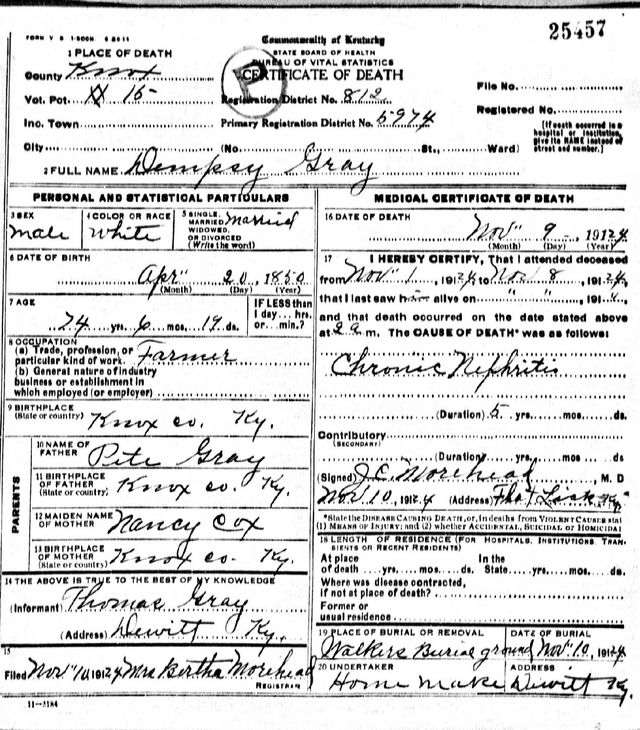 FORM V. S. 1-500M. 6-26-15
25457
Commonwealth of Kentucky
STATE BOARD OF HEALTH
BUREAU OF VITAL STATISTICS
CERTIFICATE OF DEATH
1 PLACE OF DEATH
County Knox
Vot. Pct. 15
Inc. Town
City (No. St., Ward)
Registration District No. 812
Primary Registration District No. 5974
File No.
Registered No.
[If death occurred in a hospital or institution, give its NAME instead of street and number.]
2 FULL NAME Dempsy Gray
PERSONAL AND STATISTICAL PARTICULARS
3 SEX
Male
4 COLOR OR RACE
White
5 SINGLE, MARRIED, WIDOWED, OR DIVORCED (Write the word)
Married
6 DATE OF BIRTH
Apr" 20, 1850
(Month) (Day) (Year)
7 AGE
74 yrs. 6 mos. 19 ds.
IF LESS than 1 day hrs. or min.?
8 OCCUPATION
(a) Trade, profession, or particular kind of work. Farmer
(b) General nature of industry business or establishment in which employed (or employer)
9 BIRTHPLACE (State or country) Knox co. Ky.
PARENTS
10 NAME OF FATHER Pete Gray
11 BIRTHPLACE OF FATHER (State or country) Knox co. Ky.
12 MAIDEN NAME OF MOTHER Nancy Cox
13 BIRTHPLACE OF MOTHER (State or country) Knox co. Ky.
14 THE ABOVE IS TRUE TO THE BEST OF MY KNOWLEDGE
(Informant) Thomas Gray
(Address) Dewitt Ky.
15
Filed Nov" 10, 1924 Mrs Bertha Morehead
REGISTRAR
11-3184
MEDICAL CERTIFICATE OF DEATH
16 DATE OF DEATH
Nov" 9 - , 1924
(Month) (Day) (Year)
17 I HEREBY CERTIFY, That I attended deceased
from Nov" 1, 1924, to Nov 8, 1924,
that I last saw him alive on " " , 191 4,
and that death occurred on the date stated above
at 2 a m. The CAUSE OF DEATH* was as follows:
Chronic Nephritis
(Duration) 5 yrs. mos. ds.
Contributory
(SECONDARY)
(Duration) yrs. mos. ds.
(Signed) J.C. Morehead, M. D
Nov. 10, 1924 (Address) Flat Lick Ky.
*State the DISEASE CAUSING DEATH, or, in deaths from VIOLENT CAUSES stat
(1) MEANS OF INJURY; and (2) whether ACCIDENTAL, SUICIDAL or HOMICIDAL
18 LENGTH OF RESIDENCE (FOR HOSPITALS, INSTITUTIONS, TRANSIENTS OR RECENT RESIDENTS)
At place of death yrs. mos. ds.
In the State yrs. mos. ds.
Where was disease contracted, if not at place of death?
Former or usual residence
19 PLACE OF BURIAL OR REMOVAL
Walkers Burial ground
DATE OF BURIAL
Nov" 10, 1924
20 UNDERTAKER
Home make
ADDRESS
Dewitt Ky.